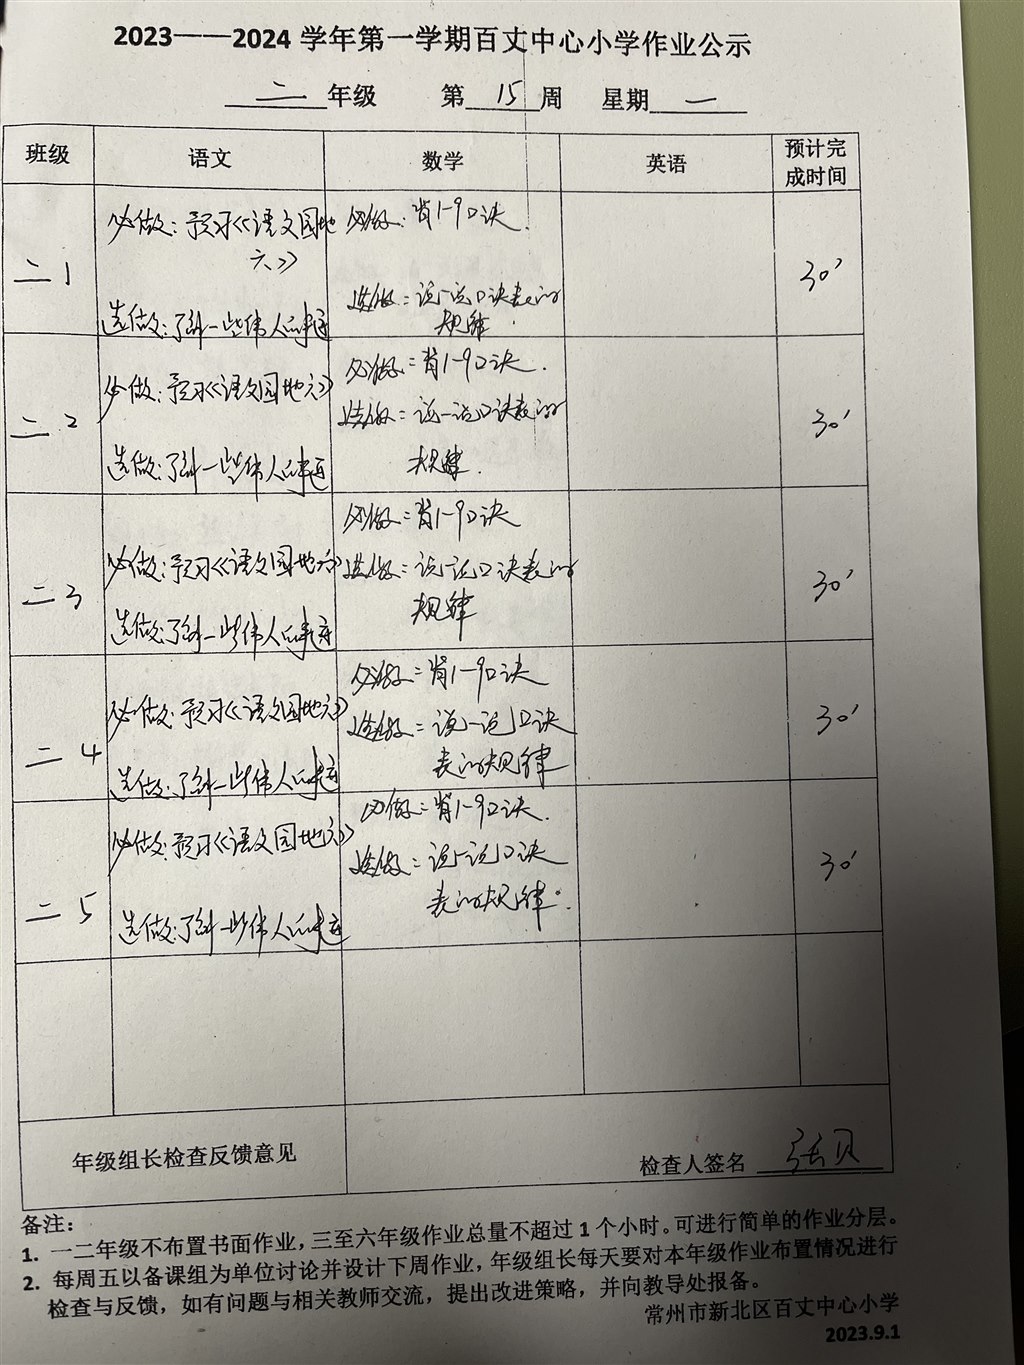 2023——2024 学年第一学期百丈中心小学作业公示
二 年级 第 15 周 星期 一
班级 语文 数学 英语 预计完成时间
二1
必做：预习《语文园地
六》
选做：了解一些伟人的事迹
必做：背1-9口诀.
选做：说一说口诀表的
规律.
30'
二2
必做：预习《语文园地六》
选做：了解一些伟人的事迹
必做：背1-9口诀.
选做：说一说口诀表的
规律.
30'
二3
必做：预习《语文园地六》
选做：了解一些伟人的事迹
必做：背1-9口诀
选做：说一说口诀表的
规律
30'
二4
必做：预习《语文园地六》
选做：了解一些伟人的事迹
必做：背1-9口诀
选做：说一说口诀
表的规律
30'
二5
必做：预习《语文园地六》
选做：了解一些伟人的事迹
必做：背1-9口诀.
选做：说一说口诀
表的规律.
30'
年级组长检查反馈意见
检查人签名 张贝
备注：
1. 一二年级不布置书面作业，三至六年级作业总量不超过 1 个小时。可进行简单的作业分层。
2. 每周五以备课组为单位讨论并设计下周作业，年级组长每天要对本年级作业布置情况进行
检查与反馈，如有问题与相关教师交流，提出改进策略，并向教导处报备。
常州市新北区百丈中心小学
2023.9.1